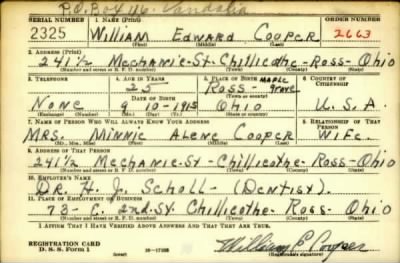 P.O. Box 116. Vandalia
SERIAL NUMBER 1. NAME (Print) ORDER NUMBER
2325 William Edward Cooper 2663
(First) (Middle) (Last)
2. ADDRESS (Print)
241 1/2 Mechanic-St-Chillicothe-Ross-Ohio
(Number and street or R. F. D. number) (Town) (County) (State)
3. TELEPHONE 4. AGE IN YEARS 5. PLACE OF BIRTH 6. COUNTRY OF CITIZENSHIP
25 Ross- Maple Grove
DATE OF BIRTH (Town or county)
None 9 10-1915 Ohio U.S.A.
(Exchange) (Number) (Mo.) (Day) (Yr.) (State or country)
7. NAME OF PERSON WHO WILL ALWAYS KNOW YOUR ADDRESS 8. RELATIONSHIP OF THAT PERSON
Mrs. Minnie Alene Cooper Wife.
(Mr., Mrs., Miss) (First) (Middle) (Last)
9. ADDRESS OF THAT PERSON
241 1/2 Mechanic-St-Chillicothe-Ross-Ohio
(Number and street or R. F. D. number) (Town) (County) (State)
10. EMPLOYER'S NAME
Dr. H. J. Scholl-(Dentist).
11. PLACE OF EMPLOYMENT OR BUSINESS
73-E. 2nd-St. Chillicothe-Ross-Ohio
(Number and street or R. F. D. number) (Town) (County) (State)
I AFFIRM THAT I HAVE VERIFIED ABOVE ANSWERS AND THAT THEY ARE TRUE.
REGISTRATION CARD
D. S. S. Form 1 (over) William E Cooper
(Registrant's signature)